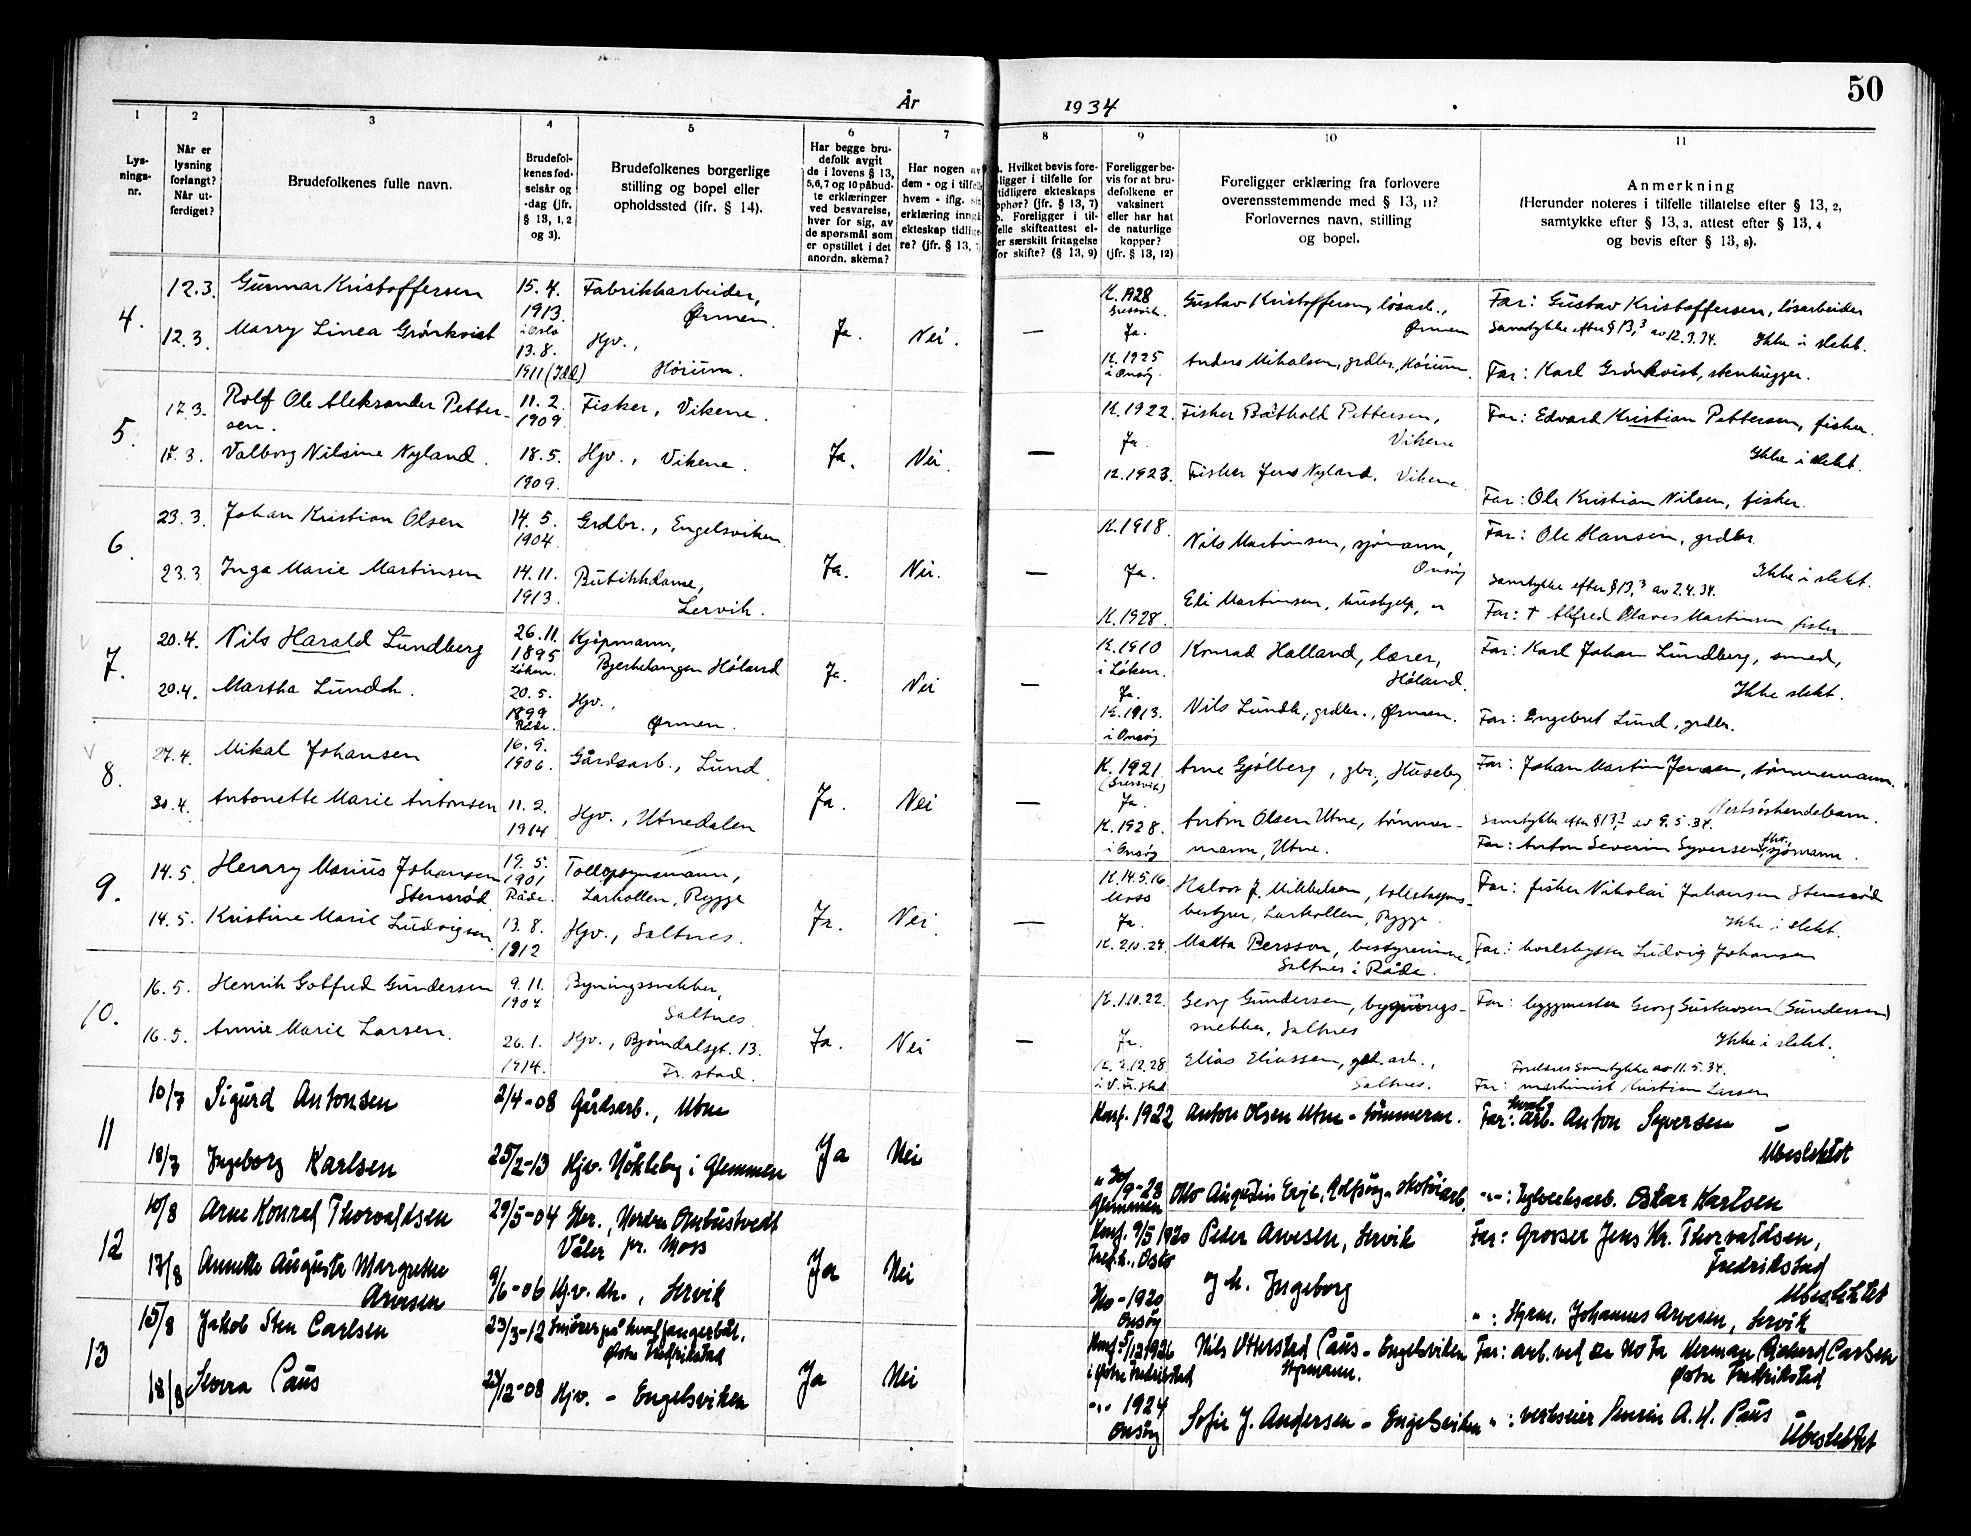 50
År 1934
1
2
3
4
5
6
7
8
9
10
11
Lys-
nings-
nr.
Når er
lysning
forlangt?
Når ut-
ferdiget?
Brudefolkenes fulle navn.
Brudefol-
kenes fød-
selsår og
-dag (jfr.
§ 13, 1, 2
og 3).
Brudefolkenes borgerlige
stilling og bopel eller
opholdssted (ifr. § 14).
Har begge bru-
defolk avgit
de i lovens § 13,
5,6,7 og 10 påbud-
te erklæringer
ved besvarelse,
hver for sig, av
de spørsmål som
er opstillet i det
anordn. skema?
Har nogen av
dem - og i tilfelle
hvem - iflg.
erklæring inngå
ekteskap tidlige-
re? (jfr. § 13,
Hvilket bevis fore-
ligger i tilfelle for
tidligere ekteskaps
ophør? (jfr. § 13, 7)
b. Foreligger i til-
felle skifteattest el-
ler særskilt fritagelse
for skifte? (§ 13, 9)
Foreligger be-
vis for at bru-
defolkene er
vaksinert
eller har hat
de naturlige
kopper?
(jfr. § 13, 12)
Foreligger erklæring fra forlovere
overensstemmende med § 13, 11?
Forlovernes navn, stilling
og bopel.
Anmerkning
(Herunder noteres i tilfelle tillatelse efter § 13, 2,
samtykke efter § 13, 3, attest efter § 13, 4
og bevis efter § 13, 8).
4.
12.3. Gunnar Kristoffersen 15.4. 1913. i Oslo Fabrikkarbeider, Ørmen.
12.3. Marry Linea Grönkvist 13.8. 1911 (Idd) Hjv., Hörum.
Ja. Nei. —
K. 1928 Gressvik. Ja. Gustav Kristoffersen, lösarb., Ørmen
K. 1925 i Onsöy Anders Mikalsen, grdbr., Hörum.
Far: Gustav Kristoffersen, lösarbeider
Samtykke efter § 13,3 av 12.3.34. Ikke i slekt.
Far: Karl Grönkvist, stenhugger.
5.
17.3. Rolf Ole Aleksander Petter-
sen. 11.2. 1909. Fisker, Vikene.
17.3. Valborg Nilsine Nyland. 18.5. 1909. Hjv., Vikene.
Ja. Nei. —
K. 1922. Ja. Fisker Båthold Pettersen, Vikene
K. 1923. Fisker Jens Nyland, Vikene
Far: Edvard Kristian Pettersen, fisker.
Ikke i slekt.
Far: Ole Kristian Nilsen, fisker.
6.
23.3. Johan Kristian Olsen 14.5. 1904. Grdbr., Engelsviken
23.3 Inga Marie Martinsen 14.11. 1913. Butikkdame, Lervik.
Ja. Nei. —
K. 1918. Ja. Nils Martinsen, sjömann, Onsöy
K. 1928. Eli Martinsen, hushjelp, "
Far: Ole Hansen, grdbr.
Ikke i slekt.
Samtykke efter § 13,3 av 2.4.34.
Far: † Alfred Olaves Martinsen fisker
7.
20.4. Nils Harald Lundberg 26.11. 1895 Löken. Kjöpmann, Bjerkelangen Höland
20.4. Martha Lundh. 20.5. 1899 Råde. Hjv., Ørmen.
Ja. Nei —
K. 1910 i Löken. Ja. Konrad Halland, lærer, Höland.
K. 1913. i Onsöy Nils Lundh, grdbr., Ørmen.
Far: Karl Johan Lundberg, smed,
Ikke slekt.
Far: Engebret Lund, grdbr.
8.
27.4. Mikal Johansen 16.9. 1906. Gårdsarb., Lund.
30.4. Antonette Marie Antonsen 11.2. 1914 Hjv., Utnedalen
Ja. Nei —
K. 1921. (Gressvik) Ja. Arne Gjölberg, gbr., Huseby
K. 1928. i Onsöy Anton Olsen Utne, tömmer-
mann, Utne.
Far: Johan Martin Jensen, tömmermann.
Nestsöskendebarn.
Samtykke efter § 13,3 av 9.5.34.
Far: Anton Severin Syversen, sjömann.
9.
14.5. Henry Marius Johansen
Stensröd 19.5. 1901 Råde. Tollopsynsmann, Larkollen, Rygge
14.5. Kristine Marie Ludvigsen 13.8. 1912 Hjv., Saltnes.
Ja. Nei. —
K. 14.5.16. Moss Ja. Halvor J. Mikkelsen, tollstasjons-
bestyrer, Larkollen, Rygge.
K. 2.10.27. Makta Persson, bestyrerinne,
Saltnes i Råde.
Far: fisker Nikolai Johansen Stensröd
Ikke i slekt.
Far: Ludvig Johansen
10.
16.5. Henrik Gotfred Gundersen 9.11. 1907 Bygningssnekker, Saltnes.
16.5. Annie Marie Larsen. 26.1. 1914. Hjv., Bjørndalsgt. 13. Fr.stad.
Ja. Nei —
K. 1.10.22. Ja. Georg Gundersen, bygnings-
snekker, Saltnes
K. 2.12.28 i V. Fr.stad Elias Eliassen, arb., Saltnes.
Far: byggmester Georg Gustavsen (Gundersen)
Ikke i slekt.
Foreldres samtykke av 11.5.34.
Far: maskinist Kristian Larsen
11
10/7 Sigurd Antonsen 2/4-08 Gårdsarb., Utne
18/7 Ingeborg Karlsen 25/2-13 Hjv. Nökleby i Glemmen
Ja Nei
Konf. 1922 Anton Olsen Utne - tömmerm.
" 30/9-28 Glemmen Otto Augustin Erik, Rolfsöy - skotöiarb.
Far: arb. Anton Syversen
Ubeslektet
-"-: Teglverksarb. Oskar Karlsen
12
10/8 Arne Konrad Thorvaldsen 29/5-04 Gbr., Nordre Ombustvedt
Våler pr. Moss
17/8 Annette Augusta Margrethe
Arvesen 9/6-06 Hjv. dtr., Lervik
Ja Nei
Konf. 9/5 1920 Oslo Peder Arvesen, Lervik
-1920 Onsöy og h. Ingeborg
Far: Grosser Jens Kr. Thorvaldsen,
Fredrikstad
Ubeslektet
": Styrm. Johannes Arvesen, Lervik
13
15/8 Jakob Sten Carlsen 23/3-12 Smörer på hvalfangerbåt,
Östre Fredrikstad
18/8 Snorra Paus 23/12-08 Hjv. - Engelsviken
Ja Nei
Konf. 5/12 1926 i Östre Fredrikstad Nils Otterstad Paus - Engelsviken
Styrmann.
-"- 1924 Onsöy Sofie J. Andersen - Engelsviken
Far: arb. ved De No Fa Herman Rikard Carlsen
Östre Fredrikstad
": verkseier Severin A. H. Paus
Ubeslektet